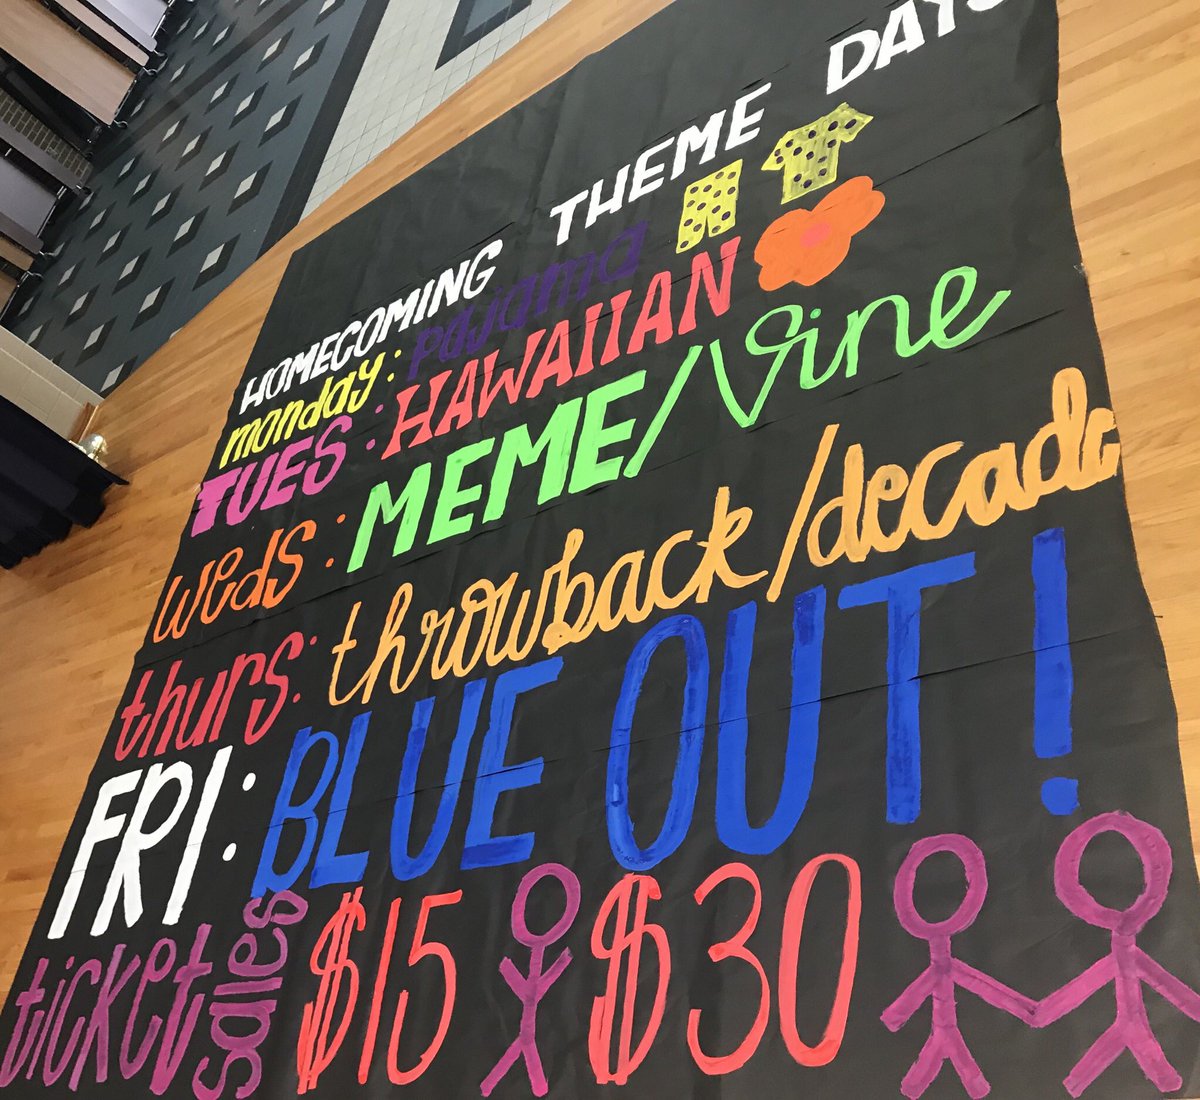 HOMECOMING THEME DAYS
monday: pajama
TUES: HAWAIIAN
weds: MEME/Vine
thurs: throwback/decade
FRI: BLUE OUT!
ticket sales $15 $30